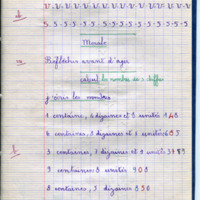 V.V.V.V.V.V.V.V.V.V.V.V.V
5.5.5.5.5.5.5.5.5.5.5.5.5
Morale
Réfléchir avant d'agir
calcul les nombres de 3 chiffres
j'écris les nombres
1 centaine, 4 dizaines et 8 unités 148
6 centaines, 8 dizaines et 5 unités 685
3 centaines, 7 dizaines et 9 unités 379
9 centaines 8 unités 908
8 centaines, 3 dizaines 830